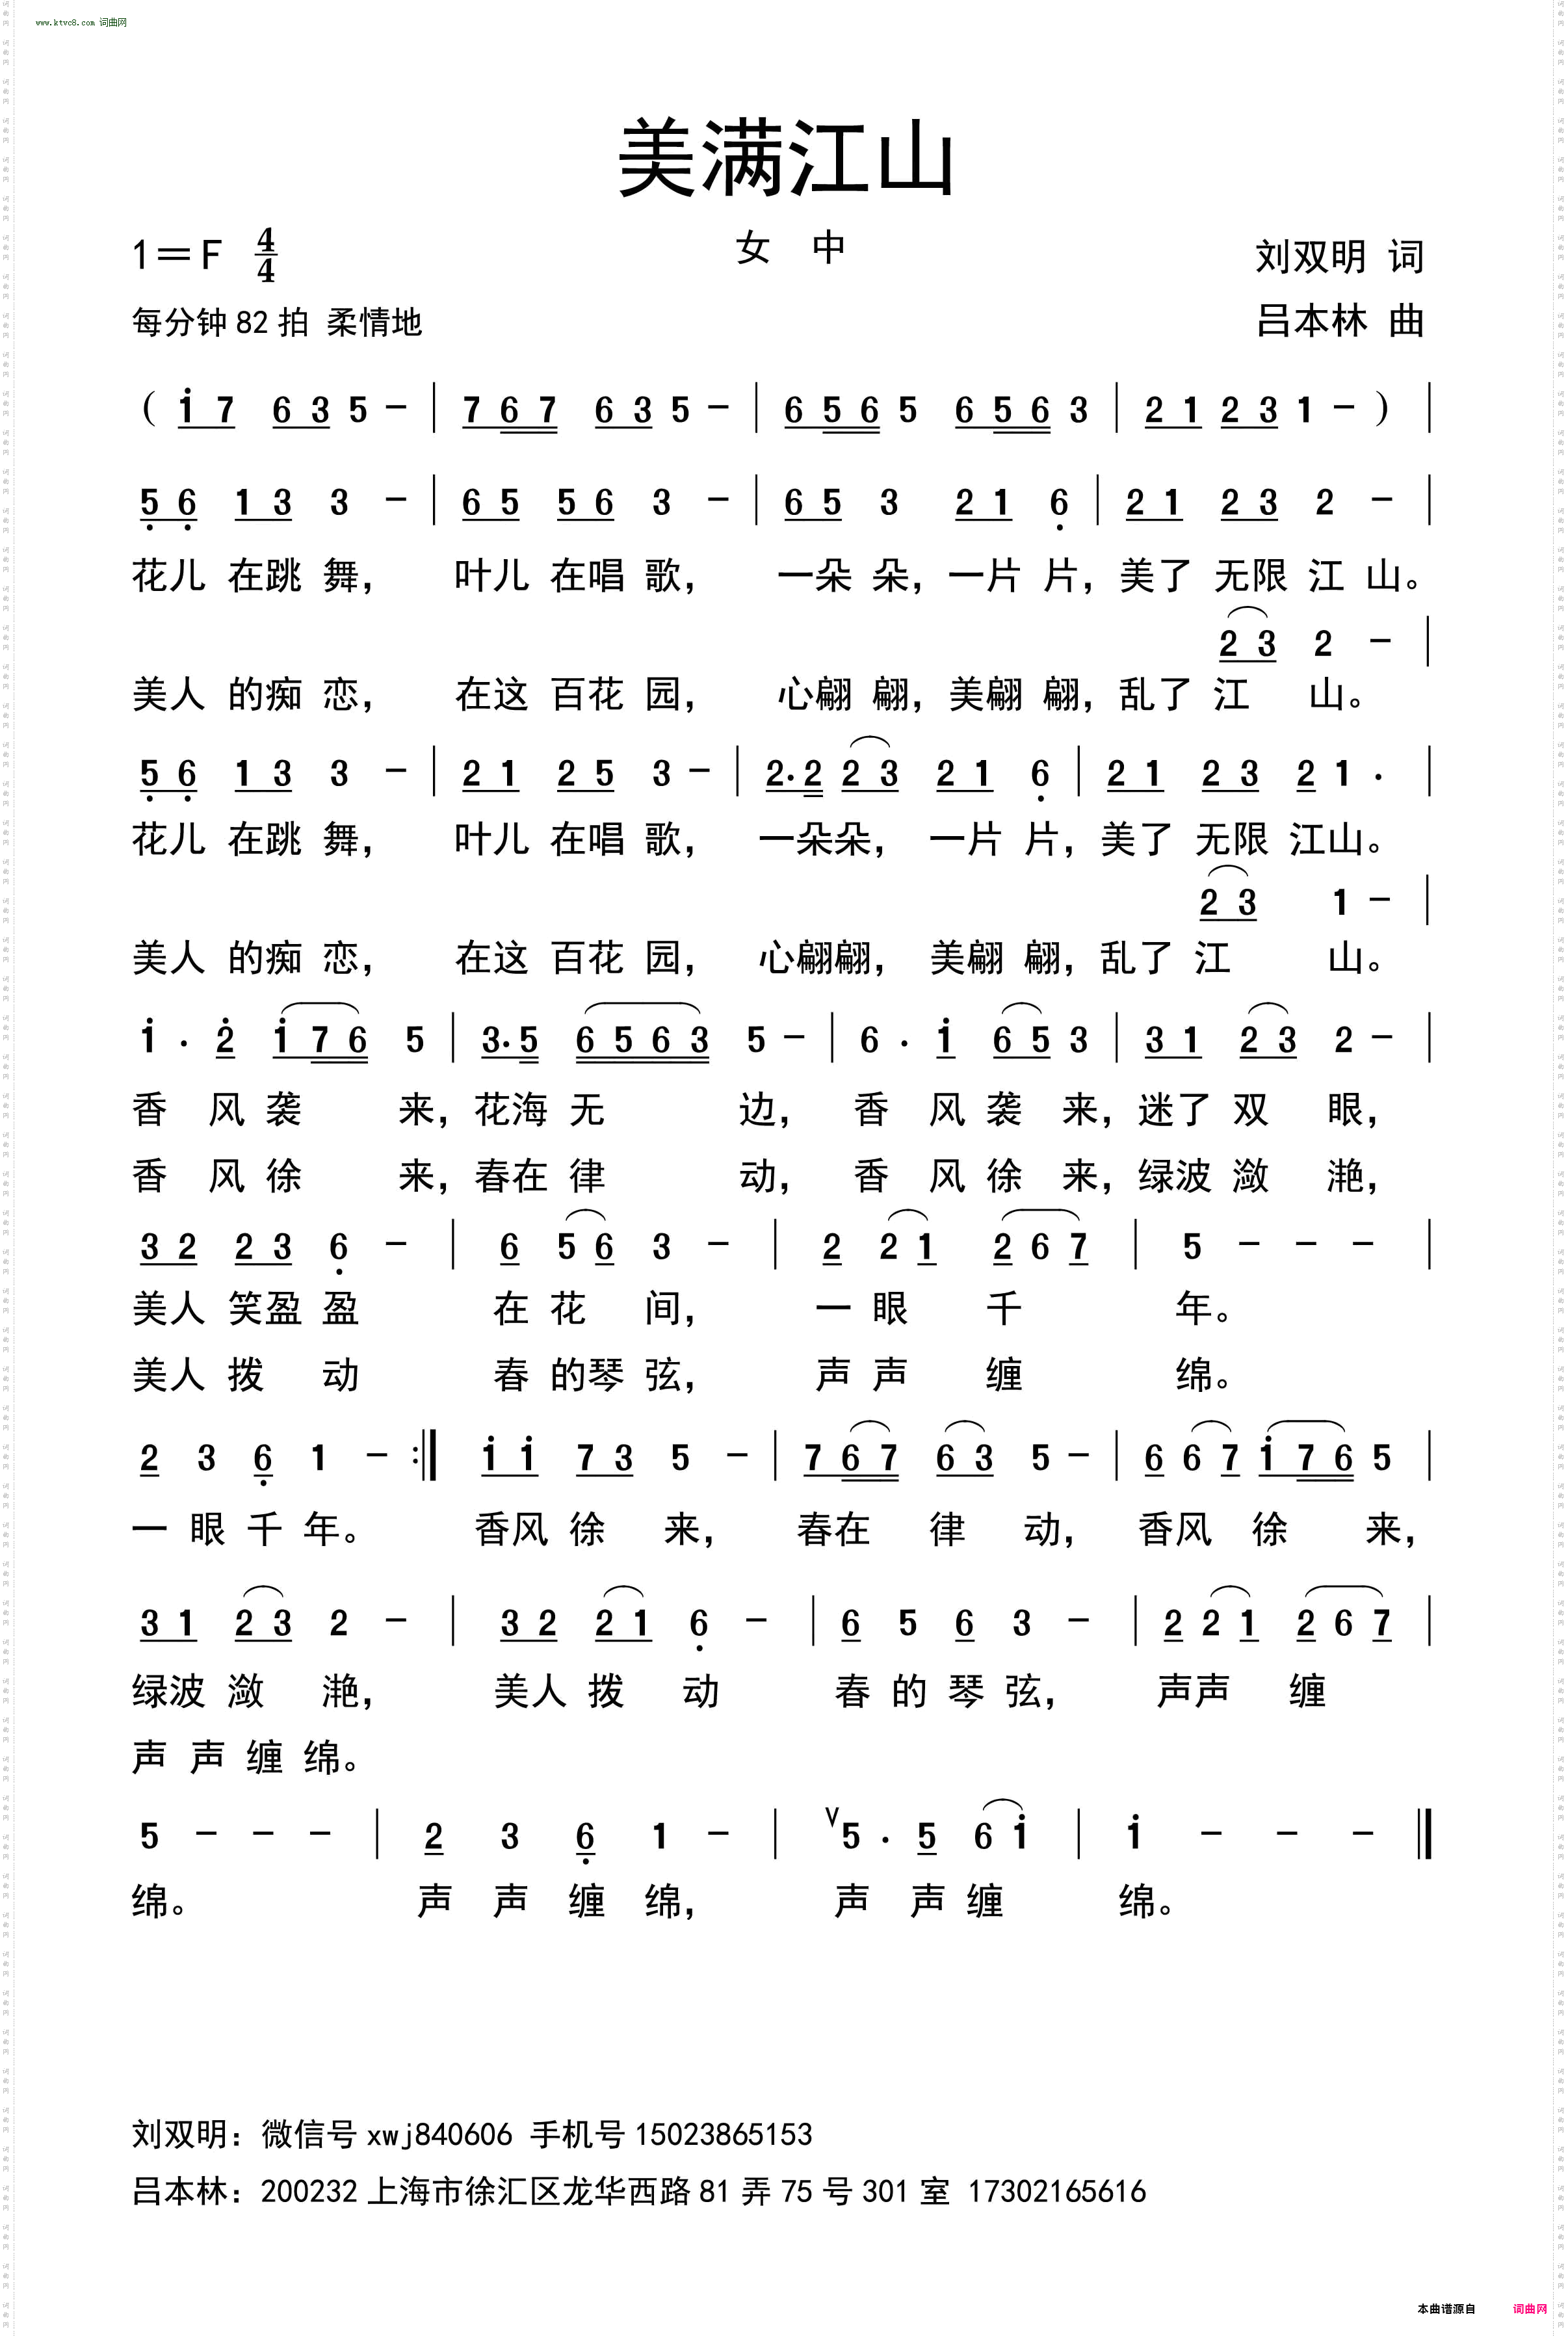 www.ktvc8.com 词曲网
美满江山
女 中
1=F 4/4
刘双明 词
每分钟82拍 柔情地
吕本林 曲
( i 7 6 3 5 - | 7 6 7 6 3 5 - | 6 5 6 5 6 5 6 3 | 2 1 2 3 1 - ) |
5̣ 6̣ 1 3 3 - | 6 5 5 6 3 - | 6 5 3 2 1 6̣ | 2 1 2 3 2 - |
花儿 在跳 舞, 叶儿 在唱 歌, 一朵 朵, 一片 片, 美了 无限 江 山。
2 3 2 - |
美人 的痴 恋, 在这 百花 园, 心翩 翩, 美翩 翩, 乱了 江 山。
5̣ 6̣ 1 3 3 - | 2 1 2 5 3 - | 2. 2 2 3 2 1 6̣ | 2 1 2 3 2 1 . |
花儿 在跳 舞, 叶儿 在唱 歌, 一朵朵, 一片 片, 美了 无限 江山。
2 3 1 - |
美人 的痴 恋, 在这 百花 园, 心翩翩, 美翩 翩, 乱了 江 山。
i . 2̇ i 7 6 5 | 3. 5 6 5 6 3 5 - | 6 . i 6 5 3 | 3 1 2 3 2 - |
香 风 袭 来, 花海 无 边, 香 风 袭 来, 迷了 双 眼,
香 风 徐 来, 春在 律 动, 香 风 徐 来, 绿波 潋 滟,
3 2 2 3 6̣ - | 6 5 6 3 - | 2 2 1 2 6 7 | 5 - - - |
美人 笑盈 盈 在 花 间, 一 眼 千 年。
美人 拨 动 春 的琴 弦, 声 声 缠 绵。
2 3 6̣ 1 - :‖ i i 7 3 5 - | 7 6 7 6 3 5 - | 6 6 7 i 7 6 5 |
一 眼 千 年。 香风 徐 来, 春在 律 动, 香风 徐 来,
3 1 2 3 2 - | 3 2 2 1 6̣ - | 6 5 6 3 - | 2 2 1 2 6 7 |
绿波 潋 滟, 美人 拨 动 春 的 琴 弦, 声声 缠
声 声 缠 绵。
5 - - - | 2 3 6̣ 1 - | ∨5 . 5 6 i | i - - - ‖
绵。 声 声 缠 绵, 声 声 缠 绵。
刘双明：微信号xwj840606 手机号15023865153
吕本林：200232上海市徐汇区龙华西路81弄75号301室 17302165616
本曲谱源自 词曲网